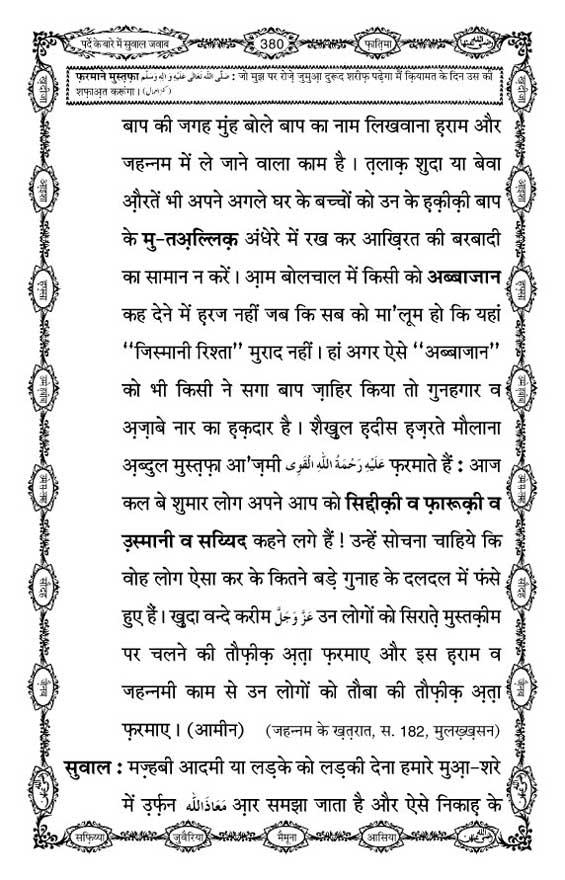 पर्दे के बारे में सुवाल जवाब
380
फ़ातिमा
फ़रमाने मुस्त़फ़ा صَلَّى اللهُ تَعَالٰى عَلَيْهِ وَاٰلِهٖ وَسَلَّم : जो मुझ पर रोज़े जुमुआ़ दुरूद शरीफ़ पढ़ेगा मैं क़ियामत के दिन उस की
शफ़ाअ़त करूंगा।
बाप की जगह मुंह बोले बाप का नाम लिखवाना ह़राम और
जहन्नम में ले जाने वाला काम है। त़लाक़ शुदा या बेवा
औ़रतें भी अपने अगले घर के बच्चों को उन के ह़क़ीक़ी बाप
के मु-तअ़ल्लिक़ अंधेरे में रख कर आख़िरत की बरबादी
का सामान न करें। आ़म बोलचाल में किसी को अब्बाजान
कह देने में ह़रज नहीं जब कि सब को मा'लूम हो कि यहां
‘‘जिस्मानी रिश्ता’’ मुराद नहीं। हां अगर ऐसे ‘‘अब्बाजान’’
को भी किसी ने सगा बाप ज़ाहिर किया तो गुनहगार व
अ़ज़ाबे नार का ह़क़दार है। शैख़ुल ह़दीस ह़ज़रते मौलाना
अ़ब्दुल मुस्त़फ़ा आ'ज़मी عَلَيْهِ رَحْمَةُ اللّٰهِ الْقَوِى फ़रमाते हैं : आज
कल बे शुमार लोग अपने आप को सिद्दीक़ी व फ़ारूक़ी व
उ़स्मानी व सय्यिद कहने लगे हैं ! उन्हें सोचना चाहिये कि
वोह लोग ऐसा कर के कितने बड़े गुनाह के दलदल में फंसे
हुए हैं। ख़ुदा वन्दे करीम عَزَّ وَجَلَّ उन लोगों को सिराते़ मुस्तक़ीम
पर चलने की तौफ़ीक़ अ़त़ा फ़रमाए और इस ह़राम व
जहन्नमी काम से उन लोगों को तौबा की तौफ़ीक़ अ़त़ा
फ़रमाए। (आमीन) (जहन्नम के ख़त़रात, स. 182, मुलख़्ख़सन)
सुवाल : मज़्हबी आदमी या लड़के को लड़की देना हमारे मुआ़-शरे
में उ़र्फ़न مَعَاذَاللّٰه आ़र समझा जाता है और ऐसे निकाह़ के
सफ़िय्या
जुवैरिया
मैमूना
आसिया